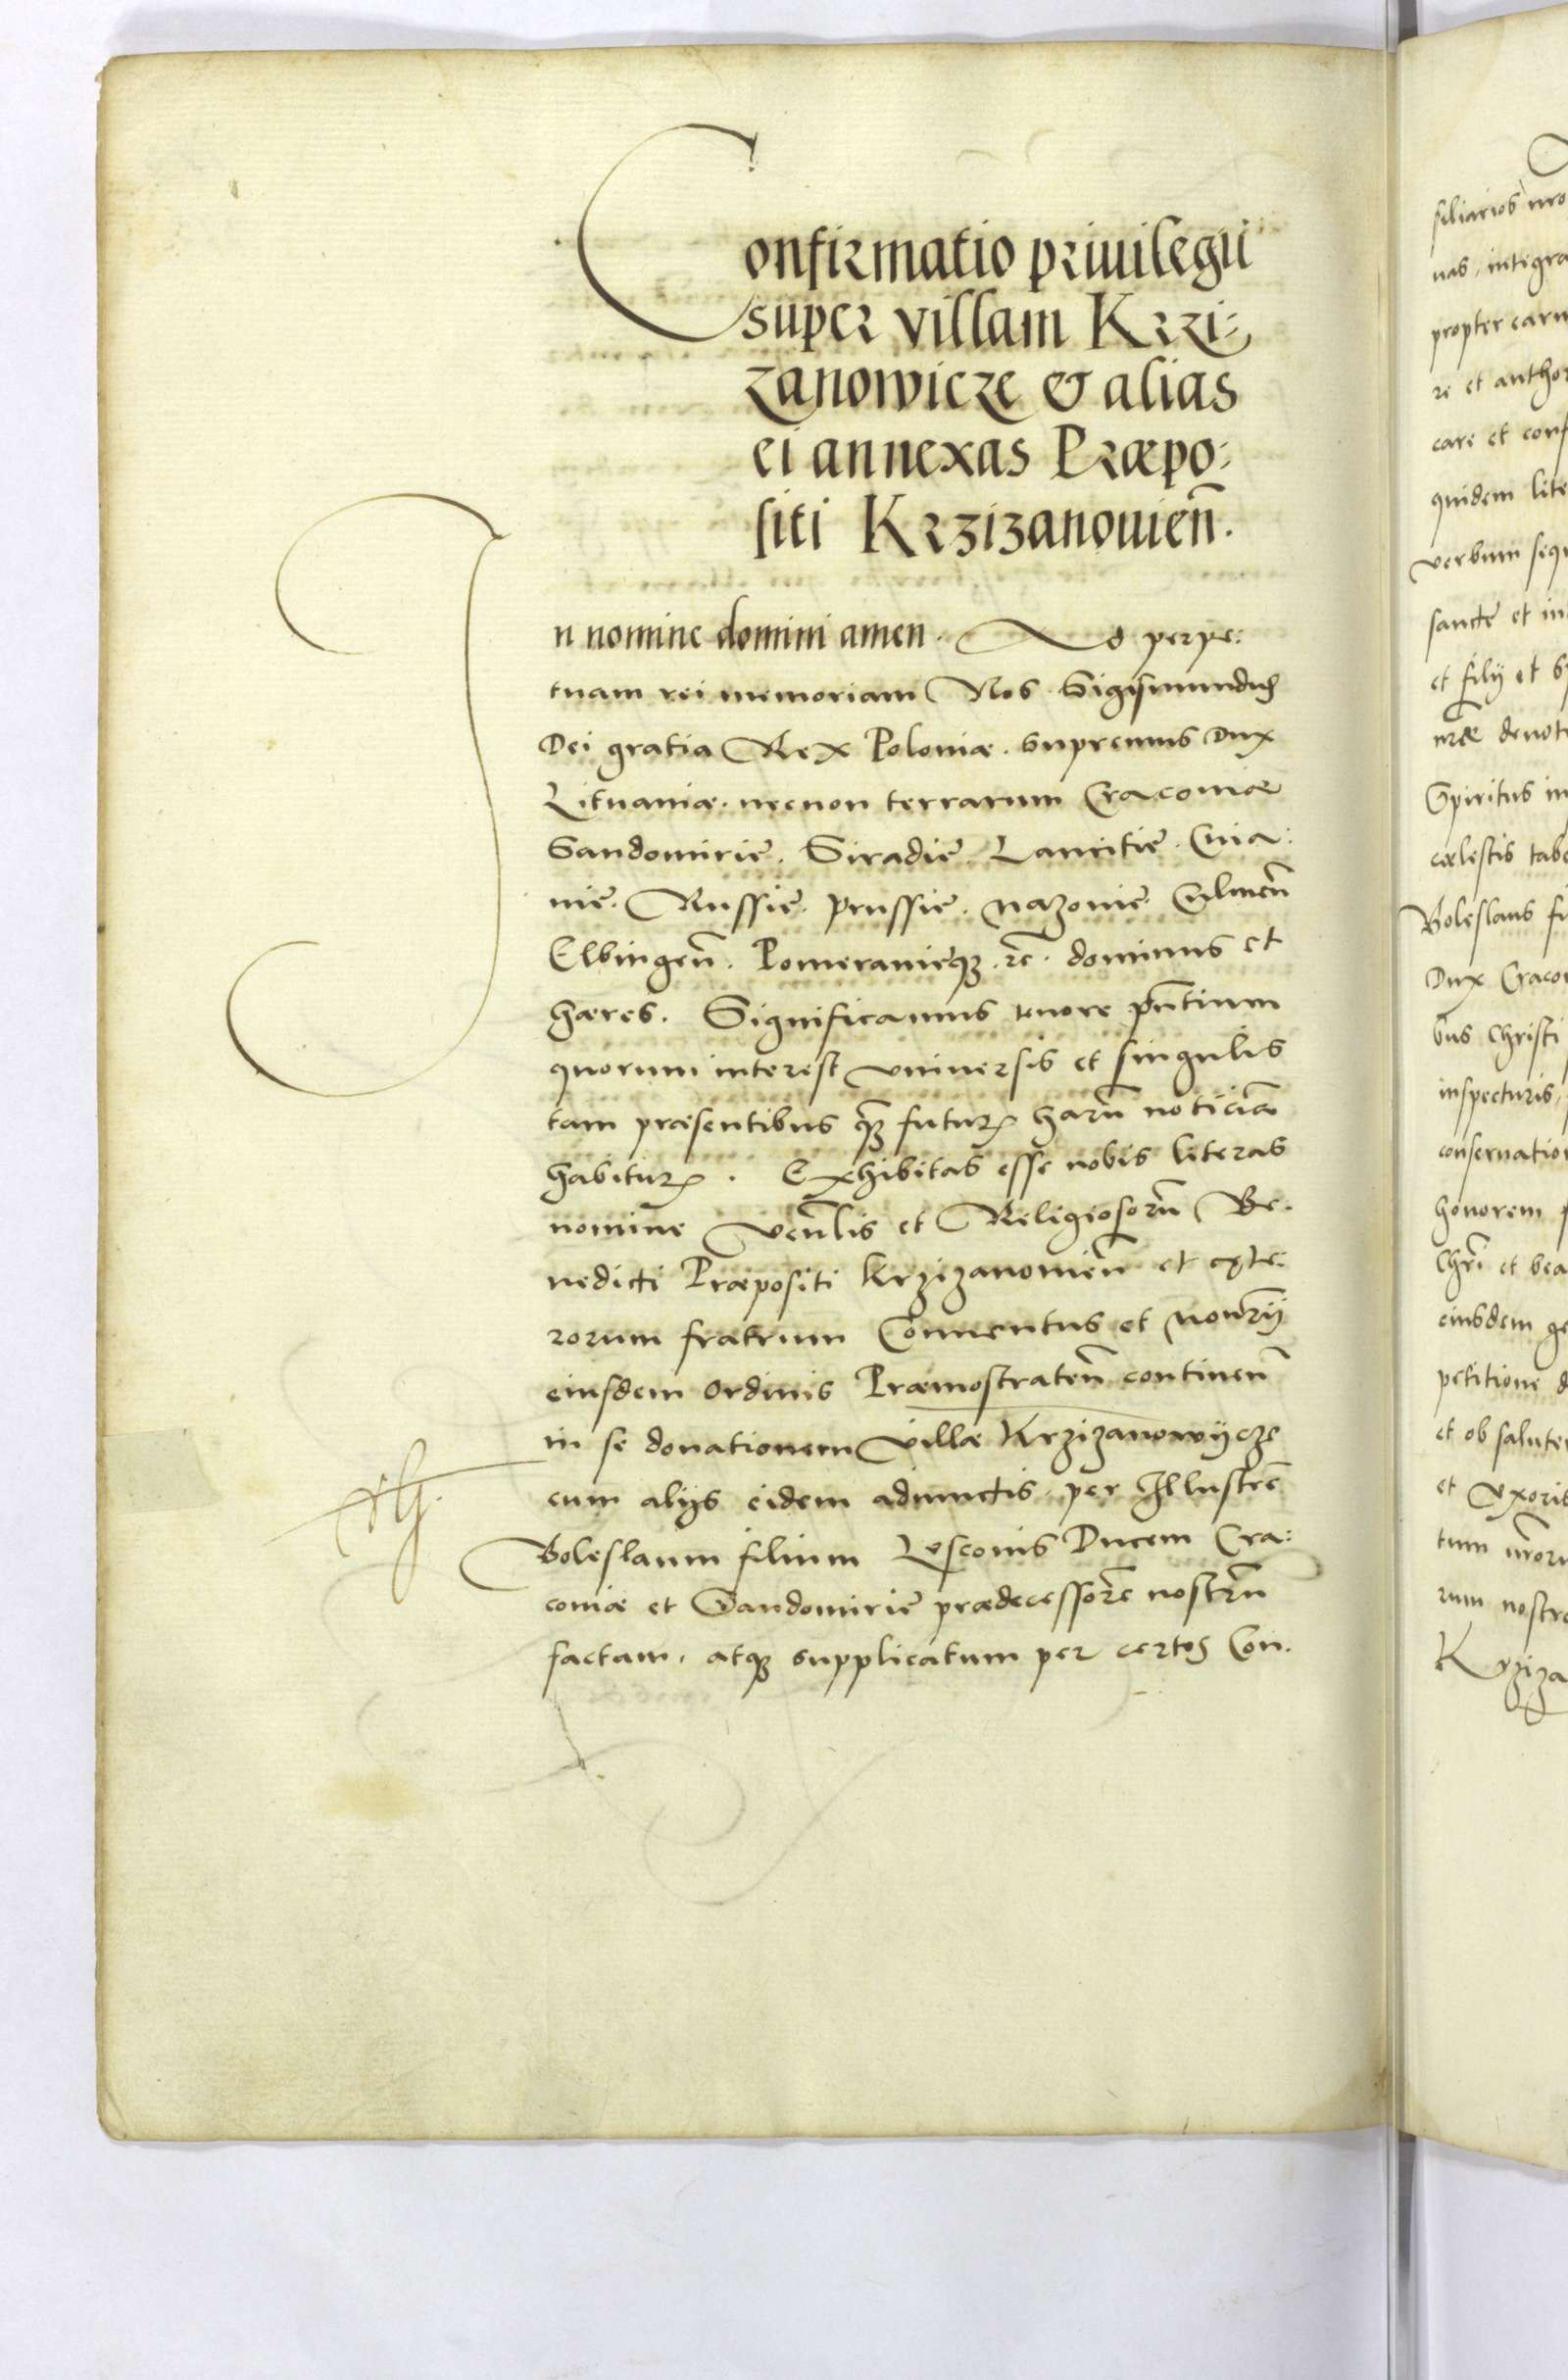 Confirmatio priuilegii
super villam Krzi:
zanowicze & alias
ei annexas Præpo:
siti Krzizanouien̄.
In nomine domini amen. Ad perpe:
tuam rei memoriam Nos Sigismundus
Dei gratia Rex Poloniæ. Supremus Dux
Lituaniæ. necnon terrarum Cracouiæ
Sandomirie. Siradie. Lancitie. Cuia:
uie. Russie. Prussie. Mazouie. Culmen̄
Elbingen̄. Pomeranieq₃. rc̄. dominus et
hæres. Significamus tenore pn̄tium
quorum interest vniuersis et singulis
tam præsentibus q̄₃ futurꝝ harū noticiā
habiturꝝ. Exhibitas esse nobis literas
nomine Ven̄lis et Religiosorū Be:
nedicti Præpositi Krzizanouien̄ et cęte:
rorum fratrum Conuentus et Mon̄rij
eiusdem Ordinis Præmostraten̄ continen̄
in se donationem Villæ Krzizanowÿcze
cum alijs eidem adiunctis per Illustrē
Boleslaum filium Lesconis Ducem Cra:
couiæ et Sandomirie prædecessorē nostrū
factam, atq₃ supplicatum per certos Con:
siliarios nro
uas, integra
propter earu
re et autho
care et conf
quidem lite
verbum sequ
sanctę et in
et filij et S
mr̄æ deuot
Spiritus in
cœlestis tabe
Boleslaus fi
Dux Craco
bus Christi
inspecturis,
conseruatio
honorem p
Chr̄i et bea
eiusdem ge
petitione d
et ob salute
et Vxoris
tum
rum nostro
Krziza